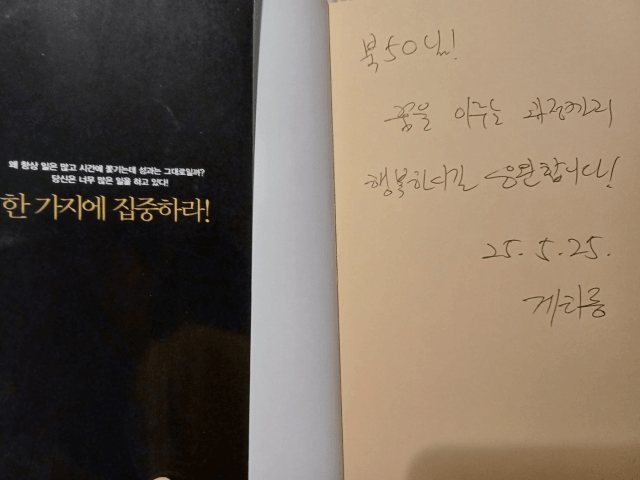 왜 항상 일은 많고 시간에 쫓기는데 성과는 그대로일까?
당신은 너무 많은 일을 하고 있다!
한 가지에 집중하라!
북50님!
꿈을 이루는 과정까지
행복하다길 응원합니다!
25. 5. 25.